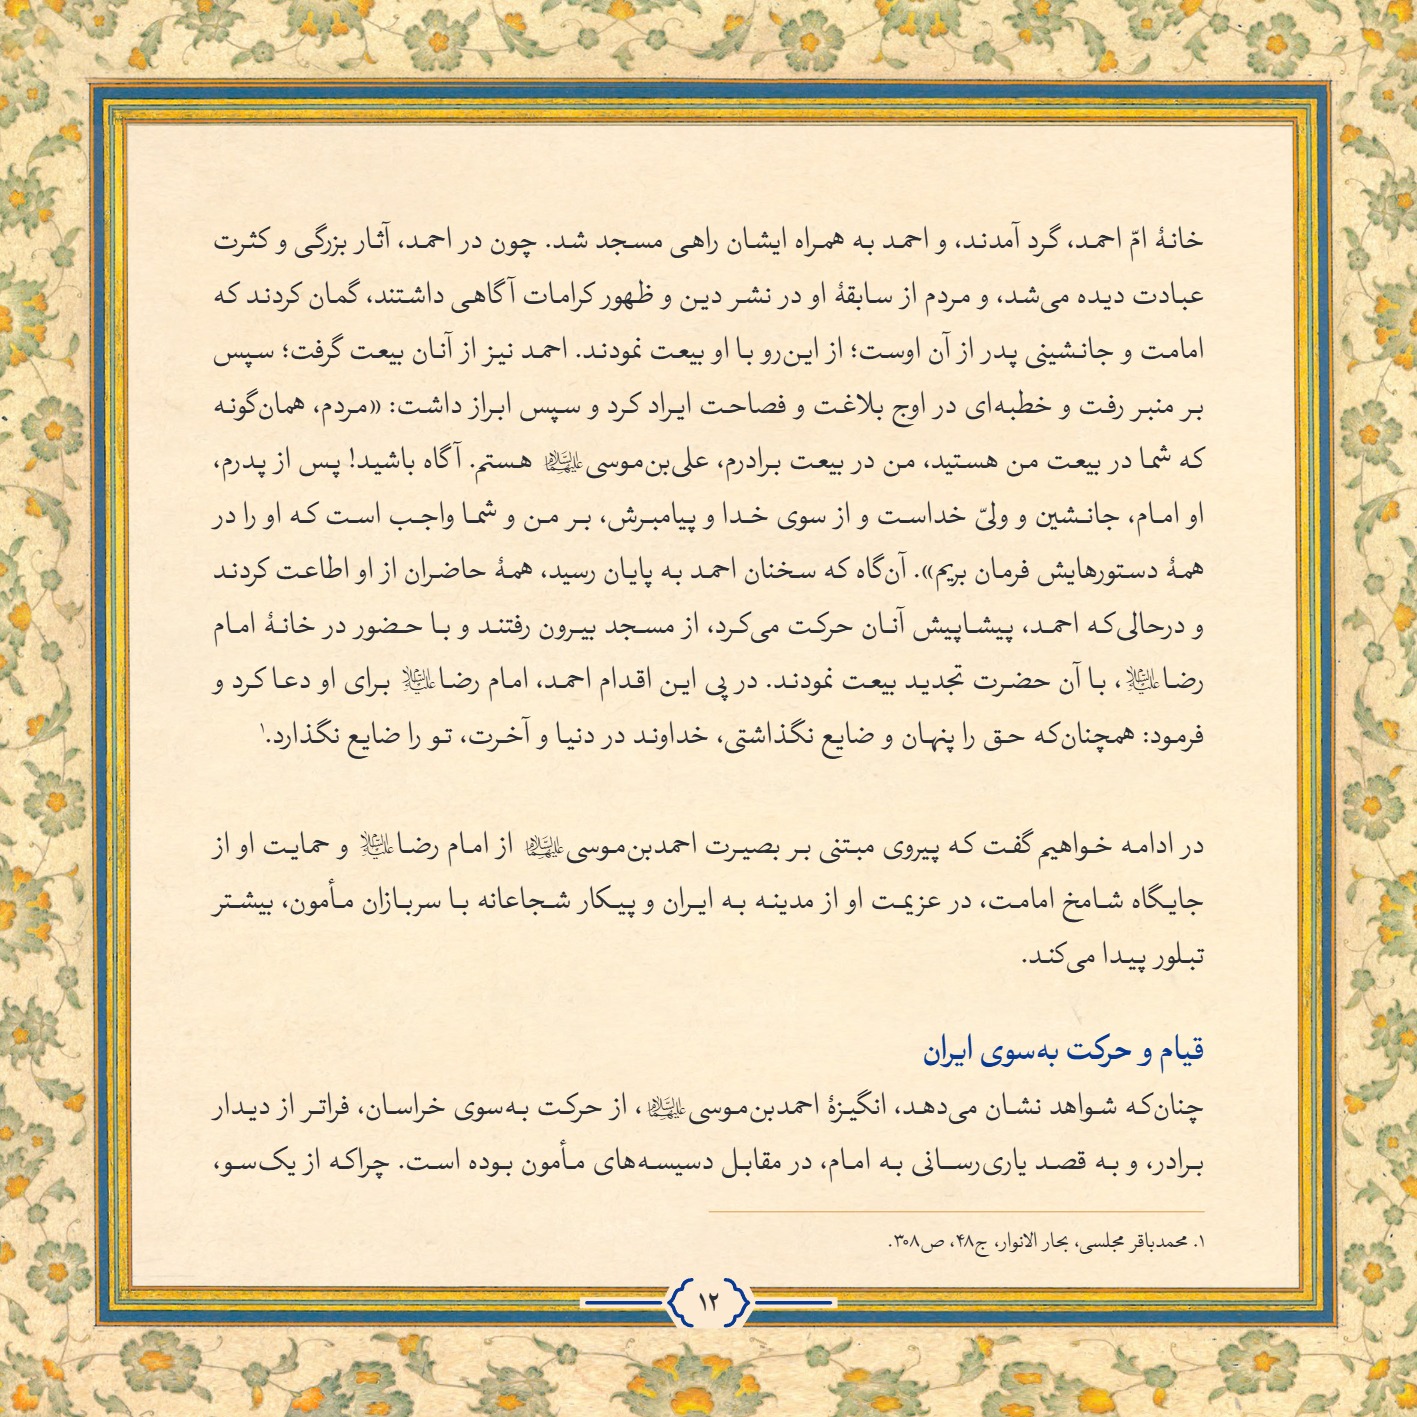 خانهٔ امّ احمد، گرد آمدند، و احمد به همراه ایشان راهی مسجد شد. چون در احمد، آثار بزرگی و کثرت
عبادت دیده می‌شد، و مردم از سابقهٔ او در نشر دین و ظهور کرامات آگاهی داشتند، گمان کردند که
امامت و جانشینی پدر از آن اوست؛ از این‌رو با او بیعت نمودند. احمد نیز از آنان بیعت گرفت؛ سپس
بر منبر رفت و خطبه‌ای در اوج بلاغت و فصاحت ایراد کرد و سپس ابراز داشت: «مردم، همان‌گونه
که شما در بیعت من هستید، من در بیعت برادرم، علی‌بن‌موسی علیهماالسلام هستم. آگاه باشید! پس از پدرم،
او امام، جانشین و ولیّ خداست و از سوی خدا و پیامبرش، بر من و شما واجب است که او را در
همهٔ دستورهایش فرمان بریم». آن‌گاه که سخنان احمد به پایان رسید، همهٔ حاضران از او اطاعت کردند
و درحالی‌که احمد، پیشاپیش آنان حرکت می‌کرد، از مسجد بیرون رفتند و با حضور در خانهٔ امام
رضا علیه‌السلام، با آن حضرت تجدید بیعت نمودند. در پی این اقدام احمد، امام رضا علیه‌السلام برای او دعا کرد و
فرمود: همچنان‌که حق را پنهان و ضایع نگذاشتی، خداوند در دنیا و آخرت، تو را ضایع نگذارد.۱
در ادامه خواهیم گفت که پیروی مبتنی بر بصیرت احمدبن‌موسی علیهماالسلام از امام رضا علیه‌السلام و حمایت او از
جایگاه شامخ امامت، در عزیمت او از مدینه به ایران و پیکار شجاعانه با سربازان مأمون، بیشتر
تبلور پیدا می‌کند.
قیام و حرکت به‌سوی ایران
چنان‌که شواهد نشان می‌دهد، انگیزهٔ احمدبن‌موسی علیهماالسلام، از حرکت به‌سوی خراسان، فراتر از دیدار
برادر، و به قصد یاری‌رسانی به امام، در مقابل دسیسه‌های مأمون بوده است. چراکه از یک‌سو،
۱. محمدباقر مجلسی، بحار الانوار، ج۴۸، ص۳۰۸.
۱۲